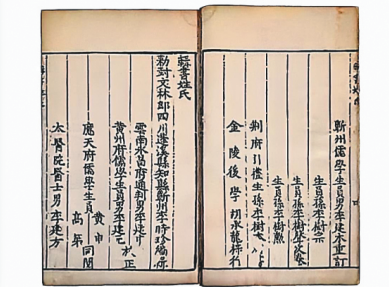 輯書姓氏
敕封文林郎四川蓬溪縣知縣蘄州李時珍編輯
雲南永昌府通判男李建中
黃州府儒學生員男李建元
校正
應天府儒學生員
黃申
高第
同閱
太醫院醫士男李建方
蘄州儒學生員男李建木重訂
生員孫李樹宗
生員孫李樹聲次卷
生員孫李樹勳
荊府引禮生孫李樹
金陵後學胡承龍梓行